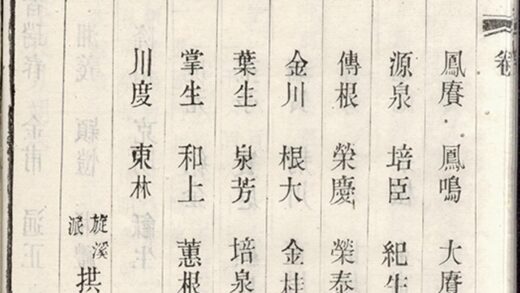 卷
鳳賡 鳳鳴 大賡
源泉 培臣 紀生
傳根 榮慶 榮泰
金川 根大 金桂
葉生 泉芳 培泉
掌生 和上 蕙根
川度 東林
旋溪派 拱